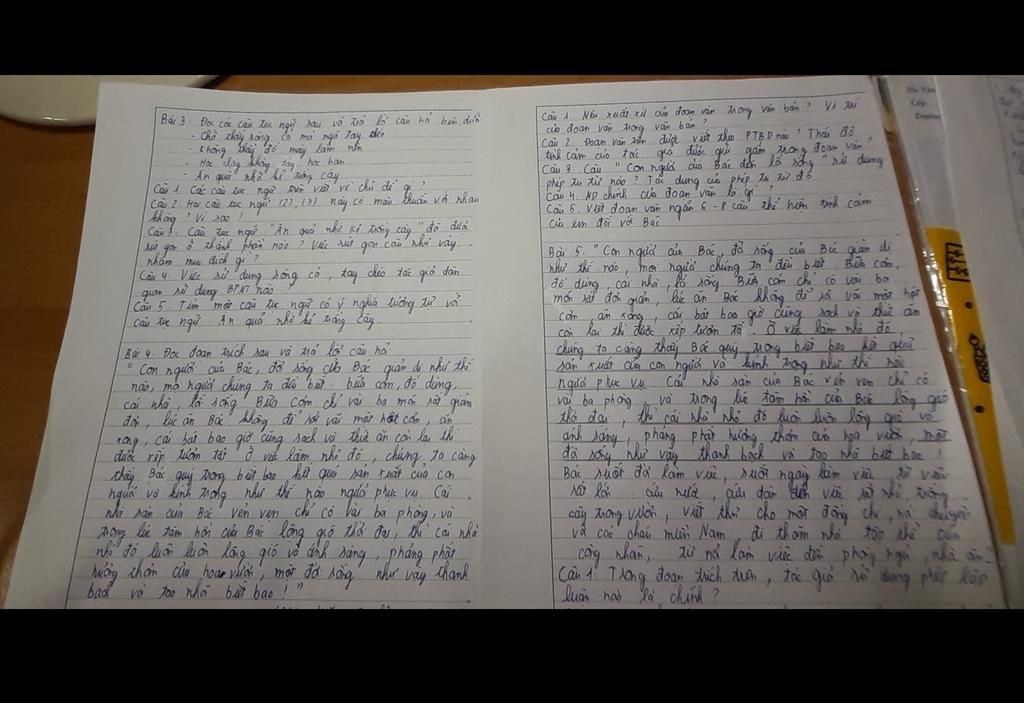 Bài 3. Đọc các câu tục ngữ sau và trả lời câu hỏi bên dưới
- Chớ thấy sóng cả mà ngã tay chèo
- Không thầy đố mày làm nên
- Học thầy không tày học bạn
- Ăn quả nhớ kẻ trồng cây
Câu 1. Các câu tục ngữ trên viết về chủ đề gì?
Câu 2. Hai câu tục ngữ (2), (3) này có mâu thuẫn với nhau
không? Vì sao?
Câu 3. Câu tục ngữ "Ăn quả nhớ kẻ trồng cây" đã được
rút gọn ở thành phần nào? Việc rút gọn câu như vậy
nhằm mục đích gì?
Câu 4. Việc sử dụng sóng cả, tay chèo tác giả dân
gian sử dụng BPNT nào?
Câu 5. Tìm một câu tục ngữ có ý nghĩa tương tự với
câu tục ngữ Ăn quả nhớ kẻ trồng cây.
Bài 4. Đọc đoạn trích sau và trả lời câu hỏi
"Con người của Bác, đời sống của Bác giản dị như thế
nào, mọi người chúng ta đều biết: bữa cơm, đồ dùng,
cái nhà, lối sống. Bữa cơm chỉ vài ba món rất giản
đơn, lúc ăn Bác không để rơi vãi một hột cơm, ăn
xong, cái bát bao giờ cũng sạch và thức ăn còn lại thì
được xếp tươm tất. Ở việc làm nhỏ đó, chúng ta càng
thấy Bác quý trọng biết bao kết quả sản xuất của con
người và kính trọng như thế nào người phục vụ. Cái
nhà sàn của Bác vẻn vẹn chỉ có vài ba phòng, và
trong lúc tâm hồn của Bác lộng gió thời đại, thì cái nhà
nhỏ đó luôn luôn lộng gió và ánh sáng, phảng phất
hương thơm của hoa vườn, một đời sống như vậy thanh
bạch và tao nhã biết bao!"
Câu 1. Nêu xuất xứ của đoạn văn trong văn bản? Vị trí
của đoạn văn trong văn bản?
Câu 2. Đoạn văn trên được viết theo PTBĐ nào? Thái độ
tình cảm của tác giả được gửi gắm trong đoạn văn?
Câu 3. Câu "Con người của Bác đến lối sống" sử dụng
phép tu từ nào? Tác dụng của phép tu từ đó
Câu 4. ND chính của đoạn văn là gì?
Câu 5. Viết đoạn văn ngắn 6-8 câu thể hiện tình cảm
của em đối với Bác
Bài 5. "Con người của Bác, đời sống của Bác giản dị
như thế nào, mọi người chúng ta đều biết. Bữa cơm,
đồ dùng, cái nhà, lối sống. Bữa cơm chỉ có vài ba
món rất đơn giản, lúc ăn Bác không để rơi vãi một hột
cơm, ăn xong, cái bát bao giờ cũng sạch và thức ăn
còn lại thì được xếp tươm tất. Ở việc làm nhỏ đó,
chúng ta càng thấy Bác quý trọng biết bao kết quả
sản xuất của con người và kính trọng như thế nào
người phục vụ. Cái nhà sàn của Bác vẻn vẹn chỉ có
vài ba phòng, và trong lúc tâm hồn của Bác lộng gió
thời đại, thì cái nhà nhỏ đó luôn luôn lộng gió và
ánh sáng, phảng phất hương thơm của hoa vườn, một
đời sống như vậy thanh bạch và tao nhã biết bao!
Bác suốt đời làm việc, suốt ngày làm việc, từ việc
rất lớn: cứu nước, cứu dân đến việc rất nhỏ, trồng
cây trong vườn, viết thư cho một đồng chí, nói chuyện
với các cháu miền Nam, đi thăm nhà tập thể của
công nhân, từ nơi làm việc đến phòng ngủ, nhà ăn
Câu 1: Trong đoạn trích trên, tác giả sử dụng phép lập
luận nào là chính?